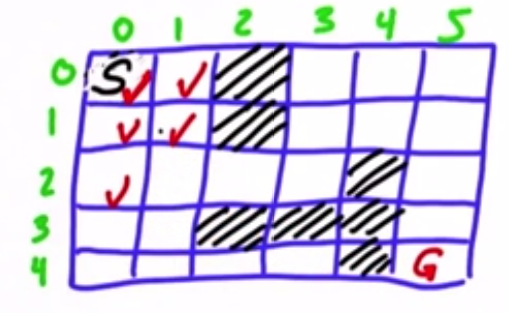 0 1 2 3 4 5
0 S ✓ ✓
1 ✓ ✓
2 ✓
3
4 G